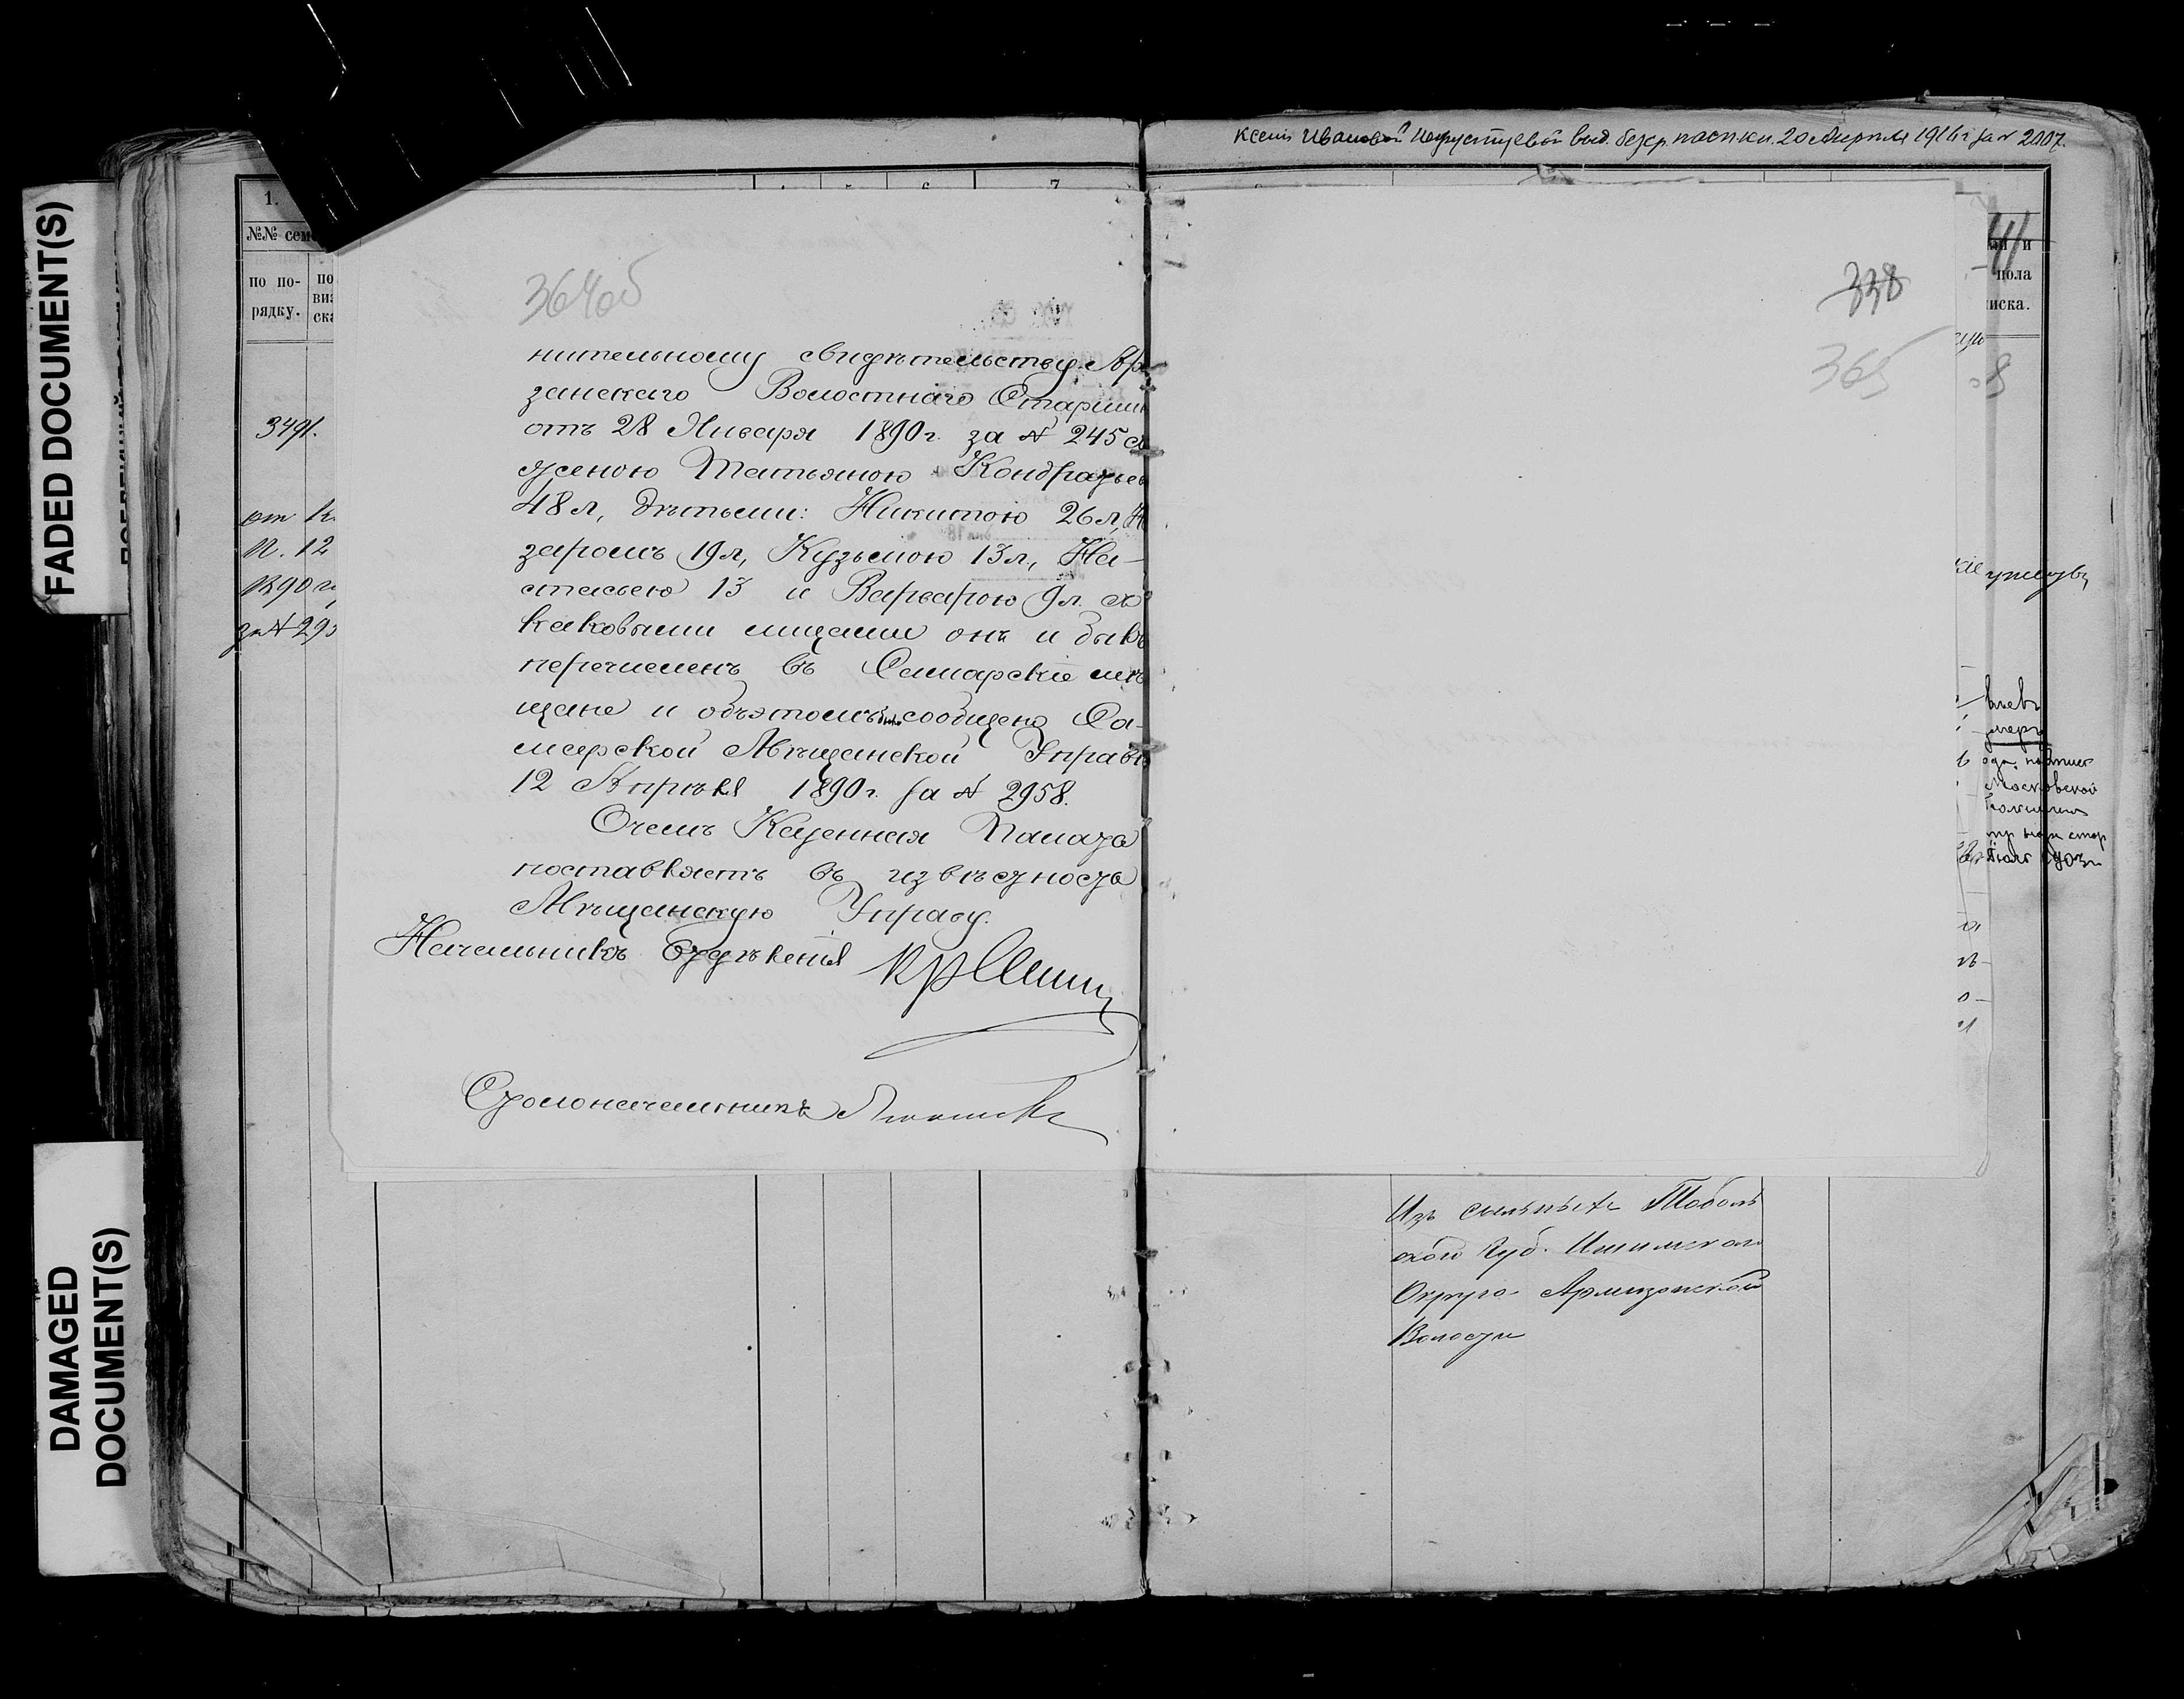 FADED DOCUMENT(S)
DAMAGED DOCUMENT(S)
Ивановой выд. безср. 20 Апреля 1916 г за № 2007.
1.
7
№№ сем
по по-
рядку.
по
виз
ска
и
пола
иска.
3491.
N. 12
1890 г.
за № 295
364об
нительному свидѣтельству Ар
занскаго Волостнаго Старшин
отъ 28 Января 1890 г. за № 245 съ
женою Татьяною Кондратьев
48 л, дѣтьми: Никитою 26 л, Н
заромъ 19 л, Кузьмою 13 л, На-
стасьею 13 и Варварою 9 л. съ
каковыми лицами онъ и былъ
перечисленъ въ Самарскіе мѣ
щане и объ этомъ было сообщено Са-
марской Мѣщанской Управѣ
12 Апрѣля 1890 г. за № 2958.
О чемъ Казенная Палата
поставляетъ въ извѣстность
Мѣщанскую Управу.
Начальникъ Отдѣленія
Столоначальникъ
338
365
умеръ
Московской
Изъ сыльныхъ Тоболь
ской Губ. Ишимскаго
Округа Армизонской
Волости